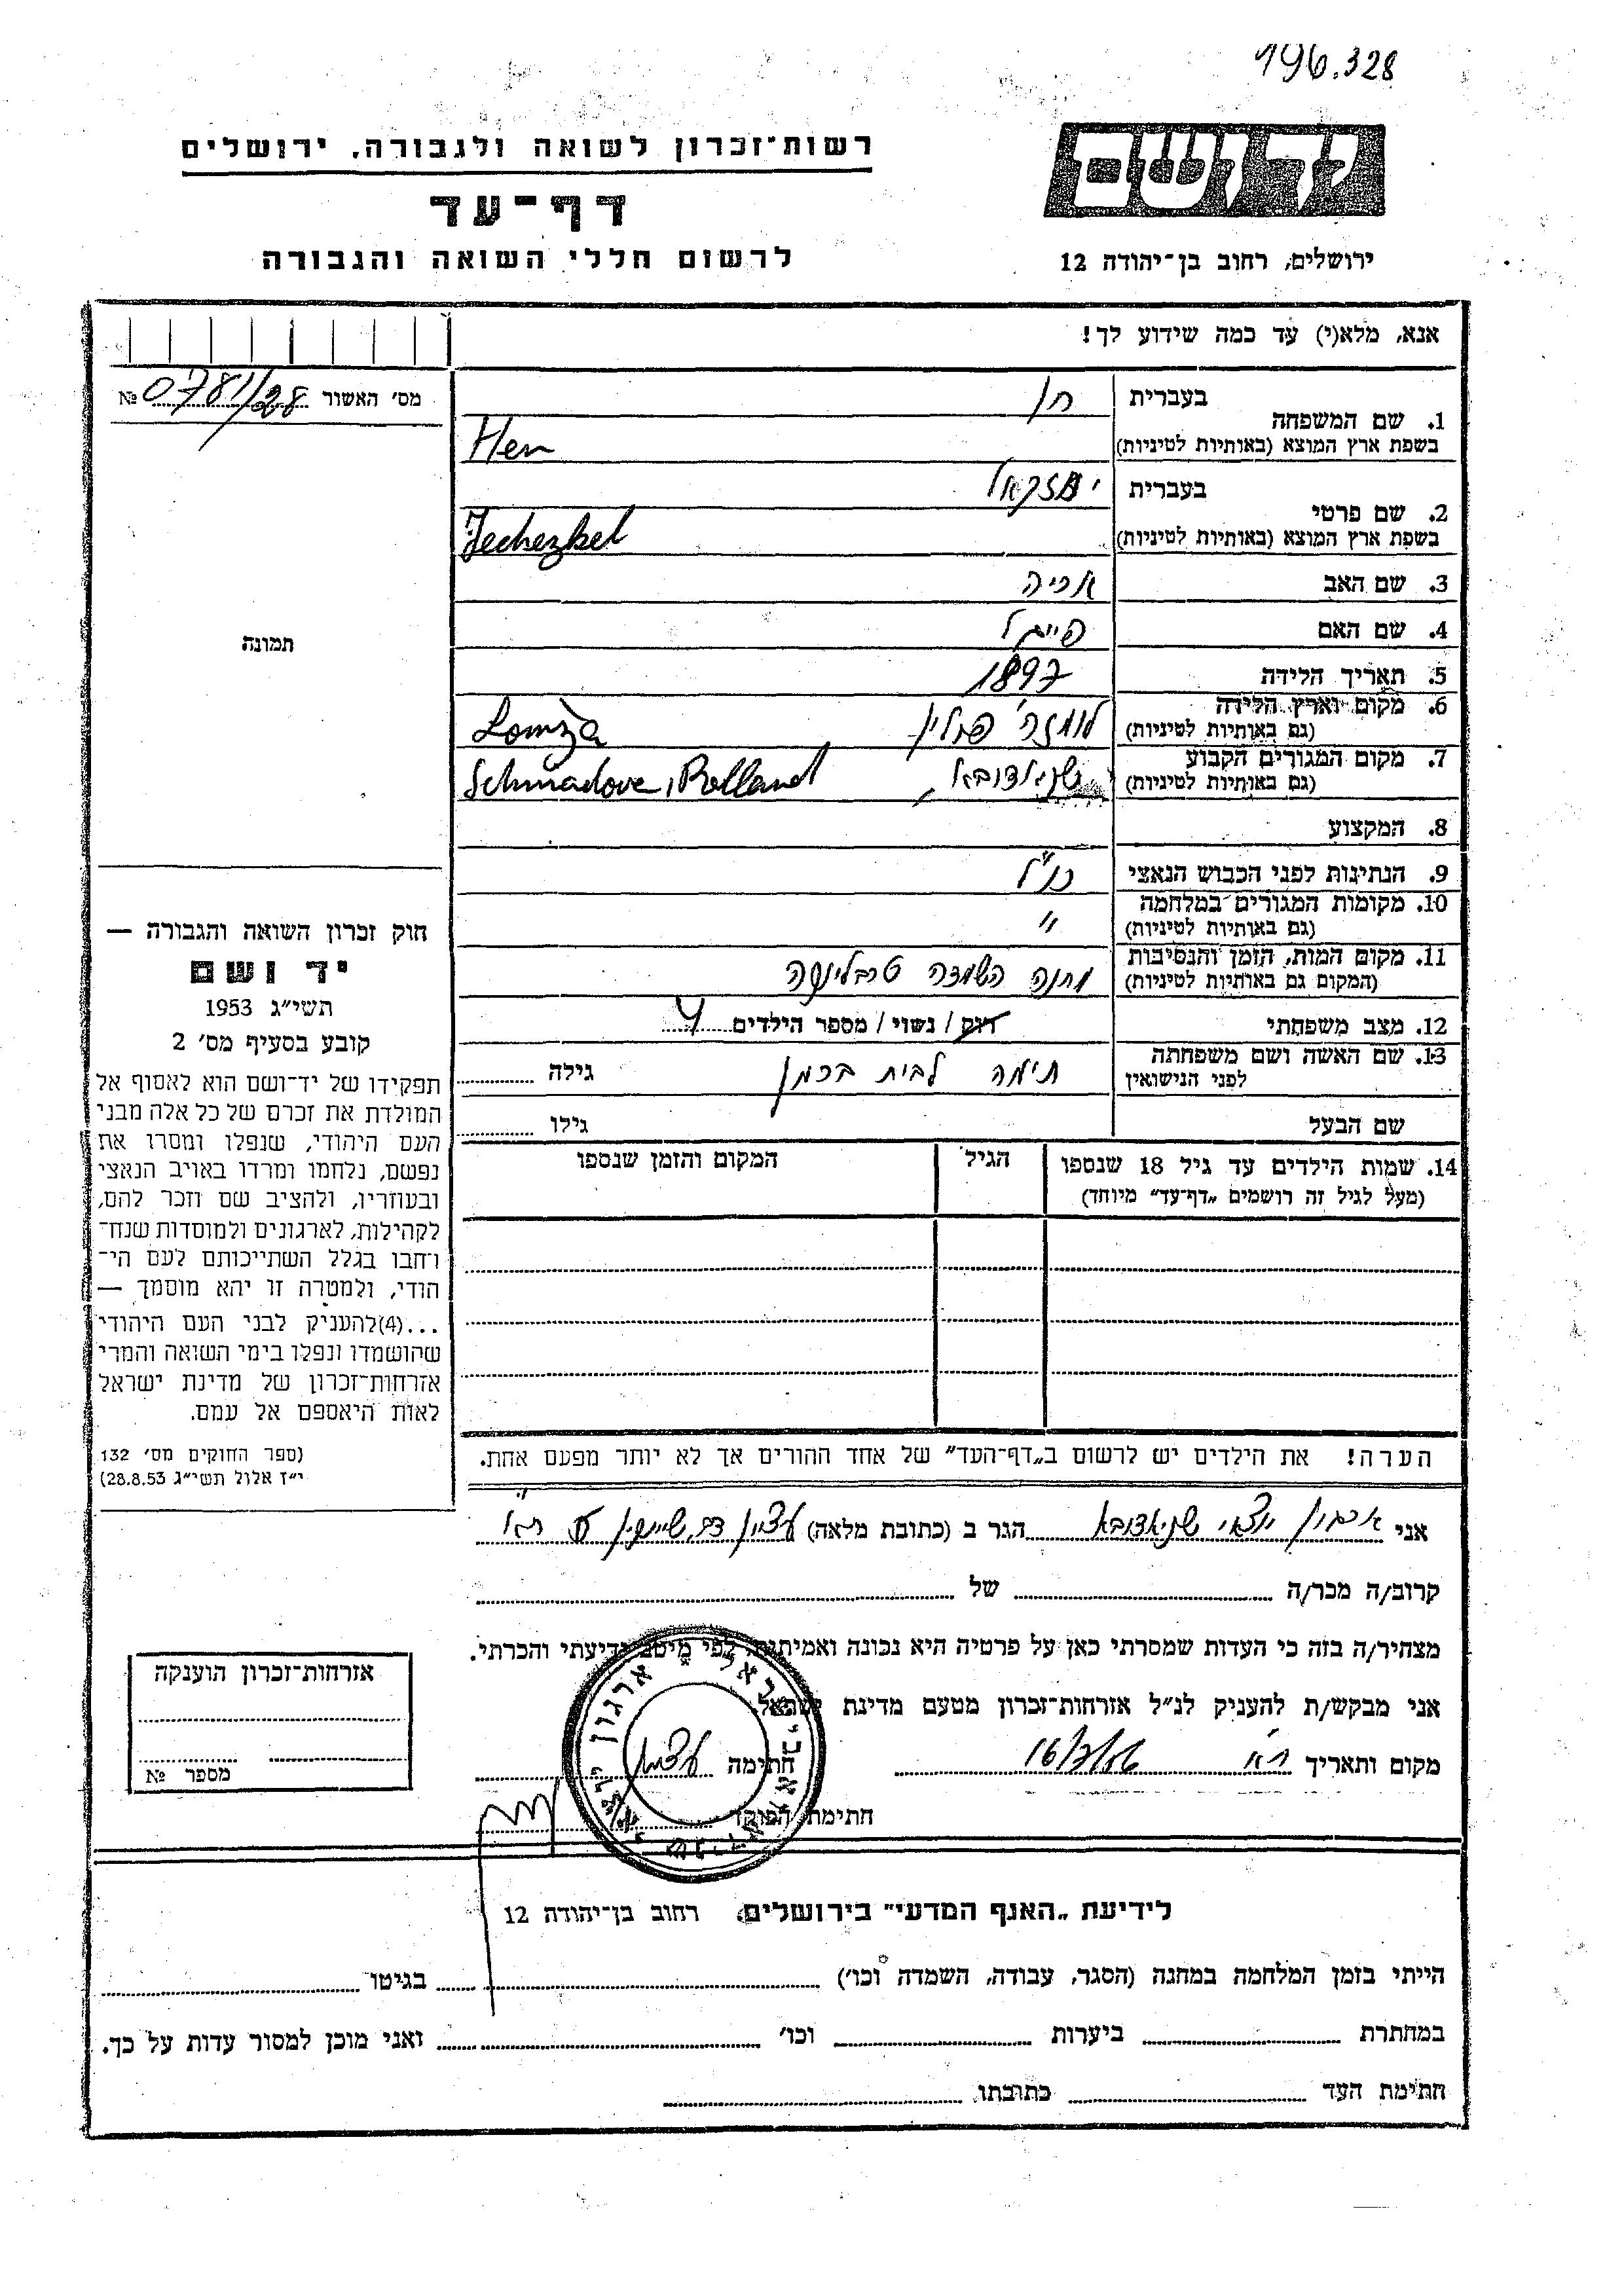 196.328
יד ושם
רשות־זכרון לשואה ולגבורה, ירושלים
דף־עד
לרשום חללי השואה והגבורה
ירושלים, רחוב בן־יהודה 12
אנא, מלא(י) עד כמה שידוע לך!
מס' האשור 0781/28 №
1. שם המשפחה
בעברית חן
בשפת ארץ המוצא (באותיות לטיניות) Hen
2. שם פרטי
בעברית יחזקאל
בשפת ארץ המוצא (באותיות לטיניות) Jechezkel
3. שם האב אריה
4. שם האם פייגל
5. תאריך הלידה 1897
6. מקום וארץ הלידה
(גם באותיות לטיניות) לומזה, פולין Lomża
7. מקום המגורים הקבוע
(גם באותיות לטיניות) שניאדובא, Schniadove, Polland
8. המקצוע
9. הנתינות לפני הכבוש הנאצי כנ"ל
10. מקומות המגורים במלחמה
(גם באותיות לטיניות) "
11. מקום המות, הזמן והנסיבות
(המקום גם באותיות לטיניות) מחנה השמדה טרבלינקה
12. מצב משפחתי רווק / נשוי / מספר הילדים 4
13. שם האשה ושם משפחתה
לפני הנישואין לבית ברמן גילה
שם הבעל גילו
14. שמות הילדים עד גיל 18 שנספו
(מעל לגיל זה רושמים „דף־עד" מיוחד)
הגיל
המקום והזמן שנספו
הערה! את הילדים יש לרשום ב„דף־העד" של אחד ההורים אך לא יותר מפעם אחת.
תמונה
חוק זכרון השואה והגבורה —
יד ושם
תשי"ג 1953
קובע בסעיף מס' 2
תפקידו של יד־ושם הוא לאסוף אל
המולדת את זכרם של כל אלה מבני
העם היהודי, שנפלו ומסרו את
נפשם, נלחמו ומרדו באויב הנאצי
ובעוזריו, ולהציב שם וזכר להם,
לקהילות, לארגונים ולמוסדות שנח־
רחבו בגלל השתייכותם לעם הי־
הודי, ולמטרה זו יהא מוסמך —
...(4)להעניק לבני העם היהודי
שהושמדו ונפלו בימי השואה והמרי
אזרחות־זכרון של מדינת ישראל
לאות היאספם אל עמם.
(ספר החוקים מס' 132
י"ז אלול תשי"ג 28.8.53)
אני ארגון יוצאי שניאדובא הגר ב (כתובת מלאה)
קרוב/ה מכר/ה של
מצהיר/ה בזה כי העדות שמסרתי כאן על פרטיה היא נכונה ואמיתית, לפי מיטב ידיעתי והכרתי.
אני מבקש/ת להעניק לנ"ל אזרחות־זכרון מטעם מדינת ישראל
מקום ותאריך חתימה
חתימת הפוקד
ארגון
אזרחות־זכרון הוענקה
מספר №
לידיעת „האגף המדעי" בירושלים, רחוב בן־יהודה 12
הייתי בזמן המלחמה במחנה (הסגר, עבודה, השמדה וכו') בגיטו
במחתרת ביערות וכו' ואני מוכן למסור עדות על כך.
חתימת העד כתובתו